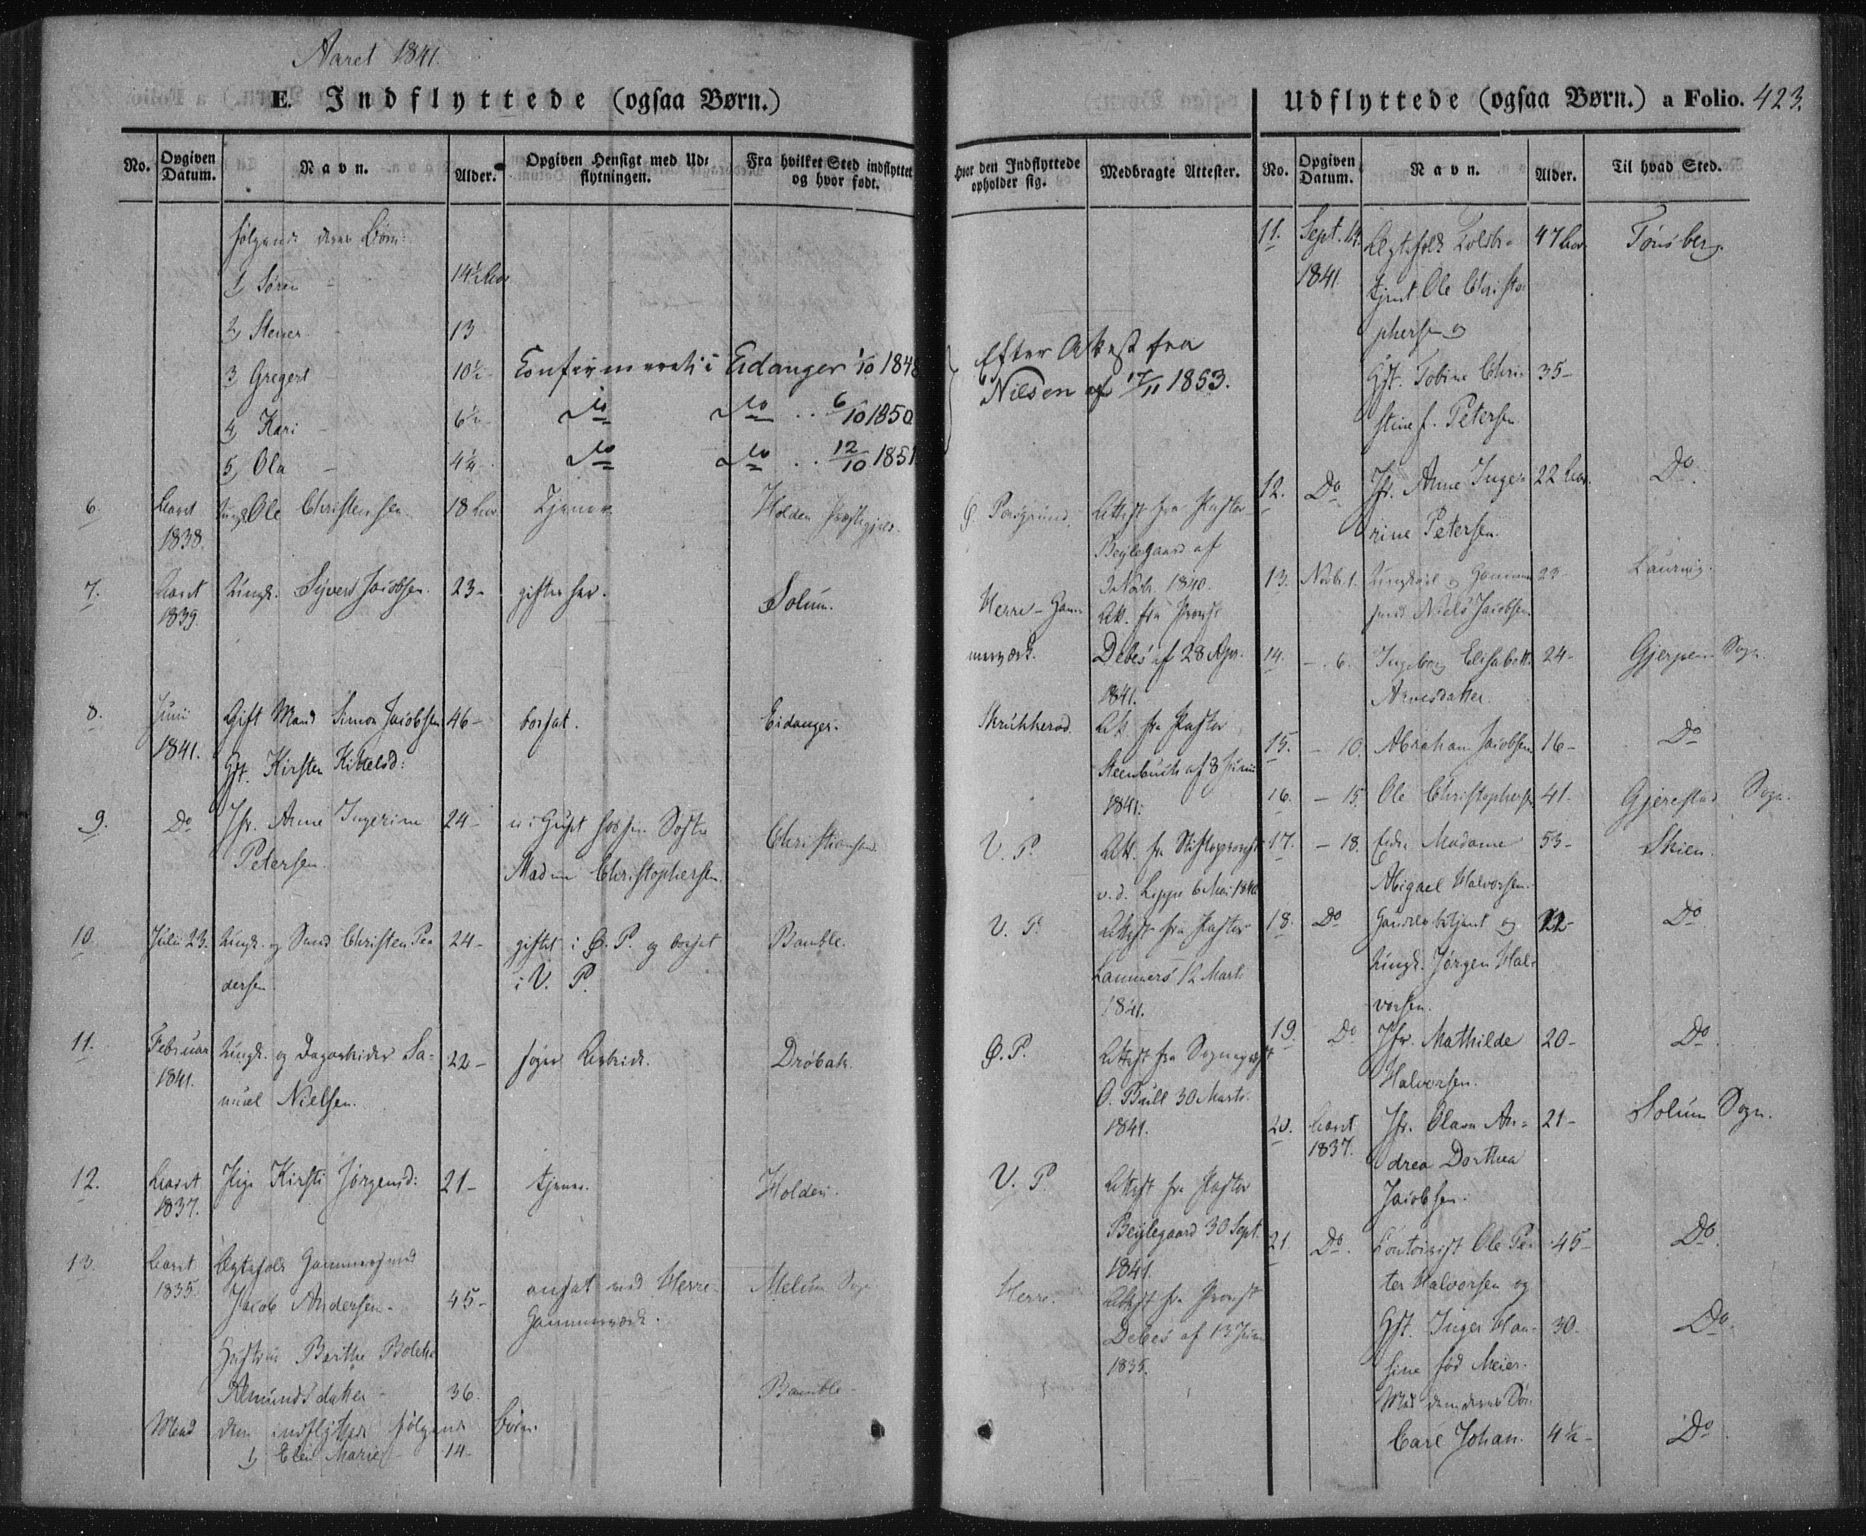 Aaret 1841.
E. Indflyttede (ogsaa Børn.)
No. Opgiven Datum. Navn. Alder. Opgiven Hensigt med Ud-flytningen. Fra hvilket Sted indflyttet og hvor født.
følgende deres Børn:
1, Søren - 14½ Aar
2, Stener - 13
3, Gregert - 10½ Confirmeret i Eidanger 1/10 1848
4, Kari - 6½ do do .. 6/10 1850
5, Ola - 4¼ do do .. 12/10 1851
6. Aaret 1838. Ungk. Ole Christensen. 18 Aar Tjener Holden Præstegjeld.
7. Aaret 1839. Ungk. Syvert Jacobsen. 23- gifter sig. Solum.
8. Juni 1841. Gift Mand Simon Jacobsen 46- bosat. Eidanger.
Gft. Kirsten Kittelsd:
9. Do Jfr. Anne Ingerine 24- Søster Christiansand.
Petersen. Madme Christophersen.
10. Julii 23. Ungk. og Smed Christen Pe- 24- giftet i Ø. P. og bosat Bamble.
dersen. i V. P.
11. Februar 1841. Ungk. og Dagarbeider Sa- 22- søger Arbeide. Drøbak.
muel Nielsen.
12. Aaret 1837. Pige Kirsti Jørgensd: 21- tjener. Holden.
13. Aaret 1835. Ægtefolk Hammersmed
Jacob Andersen - 45- ansat ved Herre Melum Sogn
Hammerværk.
Hustru Berthe Bolette
Amundsdatter - 36. Bamble -
Med dem indflyttede følgende Børn.
1, Elen Marie - 14-
Hvor den Indflyttede opholder sig. Medbragte Attester.
Efter Attest fra
Nielsen af 17/11 1853.
Ø. Porsgrund. Attest fra Pastor
Beylegaard af
1840.
Herre-Ham- Att. fra Provst
merværk. Debes af 28 Apr.
1841.
Skrukkerød. Att. fra Pastor
Steenbuch af 8 Juni
1841.
V. P. Att. fra Stiftsprovst
v. d. Lippe 6 Mai 1840
V. P. Attest fra Pastor
Lammers 12 Mart.
1841.
Ø. P. Attest fra Sognepræst
O. Bull 30 Marts
1841.
V. P. Attest fra Pastor
Beylegaard 30 Sept.
1841.
Herre. Attest fra Provst
Debes af 13 Juni
1835.
Udflyttede (ogsaa Børn.) a Folio. 423.
No. Opgiven Datum. Navn. Alder. Til hvad Sted.
11. Sept. 14. 1841 Ægtefolk Toldbe- 47 Aar Tønsberg.
tjent Ole Christo-
phersen og
Gft. Tobine Chri- 35-
stine f. Petersen
12. Do Jfr. Anne Inge- 22 Aar. Do.
rine Petersen.
13. Novbr. 1. Ungkarl og Hammer- 23- Laurvig.
smed Niels Jacobsen.
14. - 6. Ingeborg Elisabeth 24- Gjerpen Sogn.
Arnesdatter.
15. - 10. Abraham Jacobsen 16- Do
16. - 15. Ole Christophersen 41. Gjerestad Sogn.
17. - 18. Enke Madame 53- Skien.
Abigael Halvorsen.
18. Do Handelsbetjent og 22- Do
Ungk. Jørgen Hal-
vorsen.
19. Do Jfr. Mathilde 20- Do
Halvorsen.
20. Aaret 1837. Jfr. Olava An- 21- Solum Sogn.
drea Dorthea
Jacobsen.
21. Do. Contorist Ole Pe- 45- Do
ter Halvorsen og
Gft. Inger Han- 30. Do.
sine fød Meier.
Med dem deres Søn
Carl Johan. 4½- Do